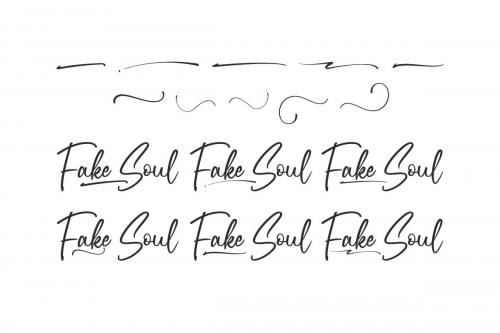 Fake Soul Fake Soul Fake Soul
Fake Soul Fake Soul Fake Soul